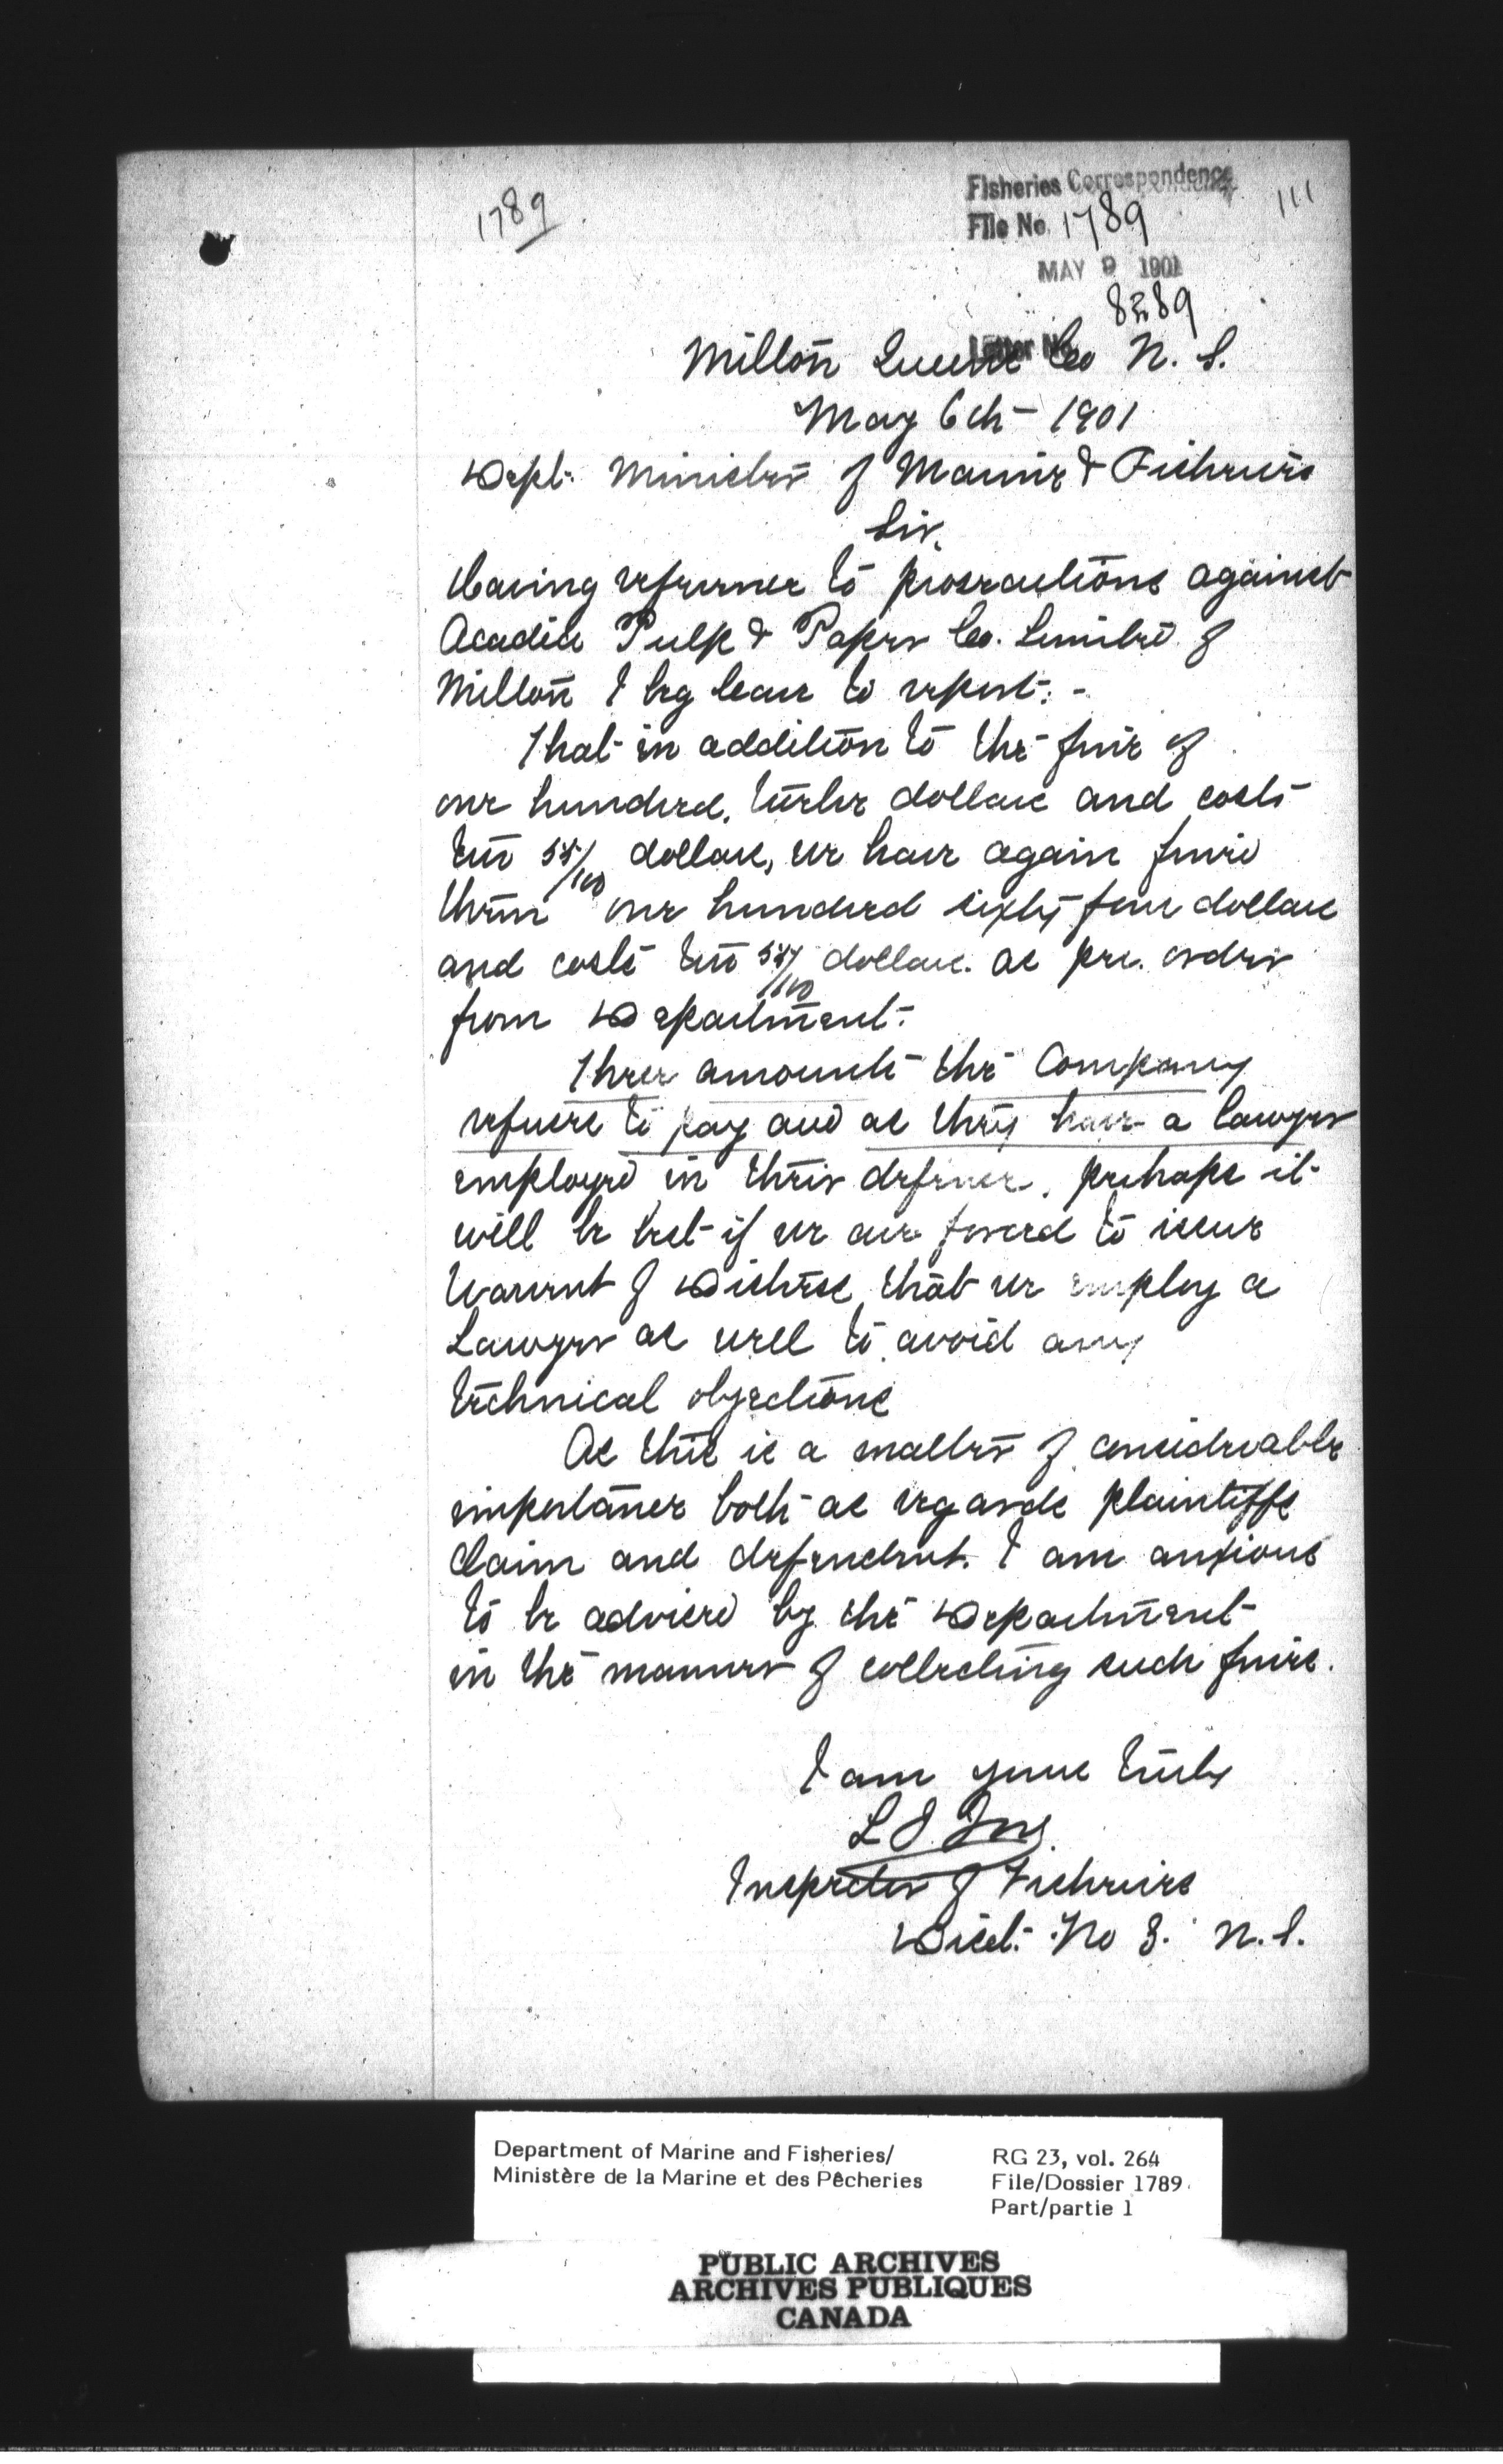 1789
Fisheries Correspondence
File No. 1789
111
MAY 9 1901
8289
Letter No.
Milton Queens Co N. S.
May 6th 1901
Dept. Minister of Marine & Fisheries
Sir,
Having reference to prosecutions against
Acadia Pulp & Paper Co. Limited of
Milton I beg leave to report:-
That in addition to the fine of
one hundred, twelve dollars and costs
ten 55/100 dollars, we have again fined
them one hundred sixty four dollars
and costs ten 55/100 dollars. as per. orders
from Department.
These amounts the Company
refuse to pay and as they have a lawyer
employed in their defence, perhaps it
will be best if we are forced to issue
Warrent of Distress, that we employ a
Lawyer as well to avoid any
technical objections
As this is a matter of considerable
importance both as regards plaintiffs
Claim and defendent. I am anxious
to be advised by the Department
in the manner of collecting such fines.
I am yours truly
L S Ford
Inspector of Fisheries
Dist. No 3. N.S.
Department of Marine and Fisheries/
Ministère de la Marine et des Pêcheries
RG 23, vol. 264
File/Dossier 1789
Part/partie 1
PUBLIC ARCHIVES
ARCHIVES PUBLIQUES
CANADA